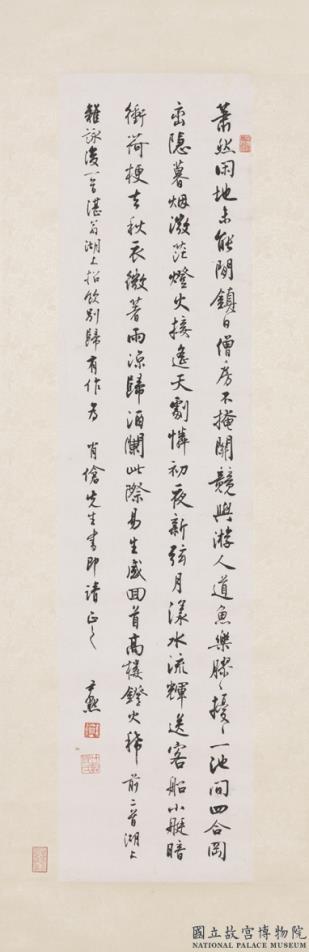 蕭然閑地未能閒鎮日僧房不掩關競與游人道魚樂膝膝擾擾一池間四合岡
巒隱暮烟微茫燈火接遙天劇憐初夜新弦月漾水流輝送客船小艇暗
衝荷梗去秋衣微著雨涼歸酒闌此際易生感回首高樓鐙火稀前二首湖上
雜詠後一首湛翁湖上招飲別歸有作為 肖傖先生書即請正之 尹默
國立故宮博物院
NATIONAL PALACE MUSEUM